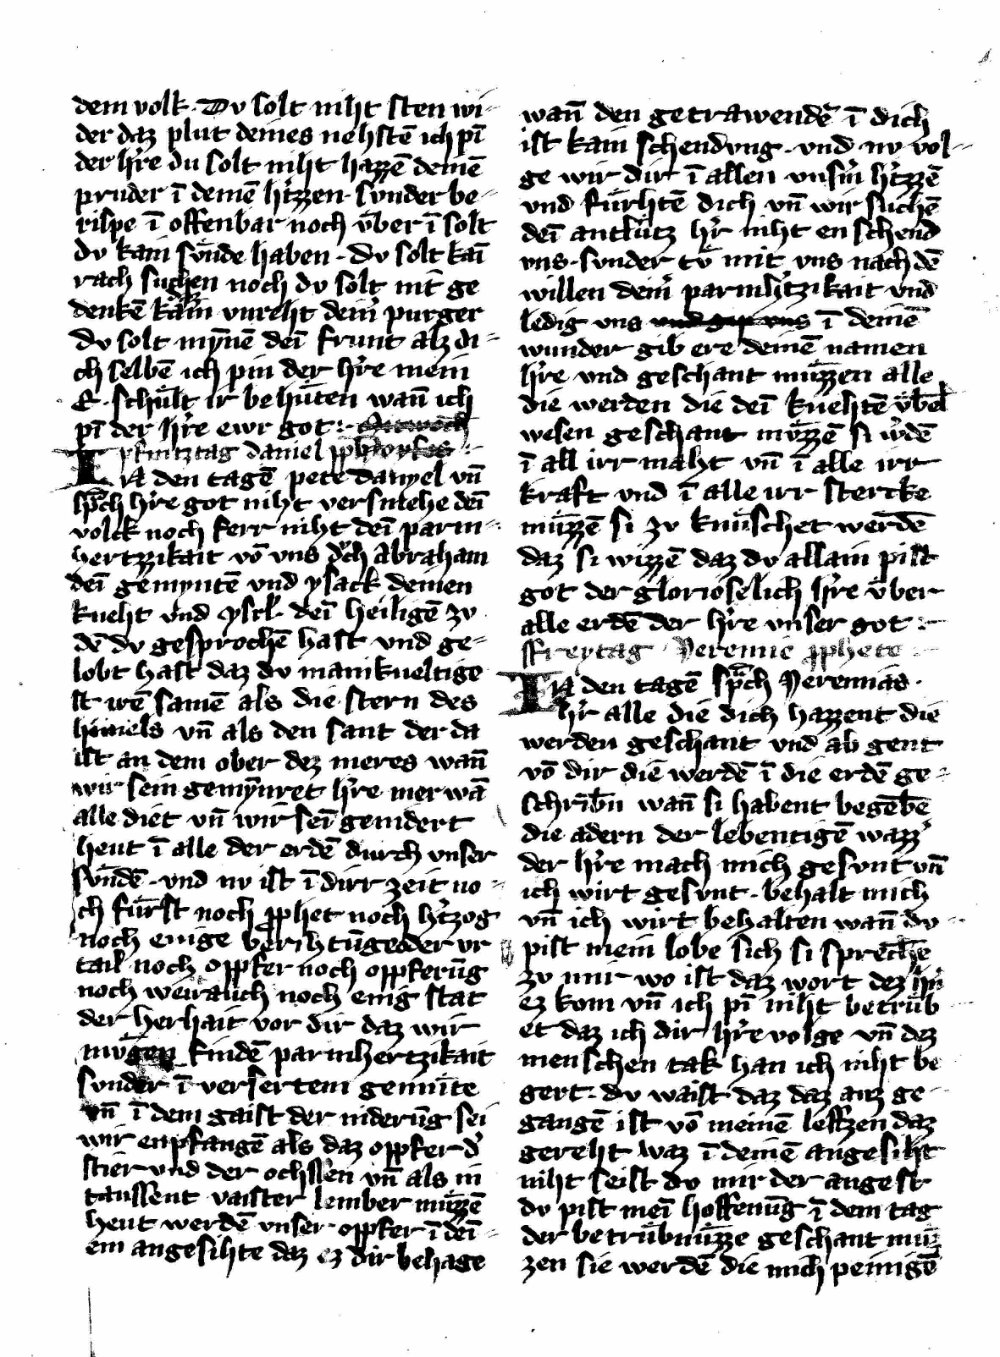 dem volk · Dv solt niht sten wi-
der daz plut deines nehstē ich pī
der h're du solt niht hazzē deinē
pruder ī deinē h'tzzen · svnder be-
rispe ī offenbar noch v̄ber ī solt
dv kain svnde haben · dv solt kaī
rach suchen noch dv solt nit ge
denkē kaim vnreht deim purger
dv solt mȳnē deī frunt alz di-
ch selbē ich pin der h're mein
E · schúlt ir behúten wañ ich
pī der h're ewr got :·
Pfintztag daniel pphoytes :·
IN den tagē pete danyel vñ
sp̄ch h're got niht versmehe deī
volck noch ferr niht deī parm-
hertzzikait vō vns d'ch abraham
deī gemyntē vnd ysack deinen
kneht vnd ysrl · deī heiligē zv
dē dv gesprochē hast vnd ge-
lobt hast daz dv manikueltige
st irē samē als die stern des
himels vñ als den sant der da
ist an dem ober dez meres wañ
wir sein gemȳnret h're mer wā
alle diet vñ wir seī genidert
heut ī alle der erdē durch vnser
svndē · vnd nv ist ī dirr zeit no-
ch fúrst noch pphet noch h'tzog
noch enige berihtūge oder vr
tail noch oppfer noch oppferūg
noch weirauch noch enig stat
der herhait vor dir daz wir
mvgen findē parmhertzikait
svnder ī versertem gemúte
vñ ī dem gaist der niderūg sei
wir enpfangē als daz oppfer d'
stier vnd der ochssen vñ als in
taussent vaister lember múzzē
heut werdē vnser oppfer ī deī-
em angesihte daz ez dir behage
wañ den getrawendē ī dich
ist kain schendvng · vnd nv vol-
ge wir dir ī allen vnsm h'tzzē
vnd fúrhtē dich vñ wir suchē
deī antlútz h'r niht en schend
vns · svnder tv mit vns nach dē
willen deim' parmh'tzikait vnd
ledig vns ī deinē
wunder gib ere deinē namen
h're vnd geschant múzzen alle
die werden die deī knehtē v̄bel
weisen geschant mvzzē si w'dē
ī all irr maht vñ ī alle irr
kraft vnd ī alle irr stercke
múzzē si zv knúschet werdē
daz si wizzē daz dv allain pist
got der gloriöselich h're v̄ber
alle erdē der h're vnser got :·
Freytag Jeremie pphete
IN den tagē sp̄ch Jeremias ·
h'r alle die dich hazzent die
werden geschant vnd ab gent
vō dir die werdē ī die erdē ge-
schribn̄ wañ si habent begebē
die adern der lebentigē wazz'
der h're mach mich gesvnt vñ
ich wirt gesvnt · behalt mich
vñ ich wirt behalten wañ dv
pist mein lobe sich si sprechē
zv mir wo ist daz wort dez h'n
ez kom vñ ich pī niht betrúb
et daz ich dir h're volge vñ dez
menschen tak han ich niht be
gert · dv waist daz daz auz ge-
gangē ist vō meinē leftzen daz
gereht waz ī deinē angesiht
niht seist dv mir der angest
dv pist meī hoffenūg ī dem tag
der betrúbnúzze geschant múz
zen sie werdē die mich peinigē